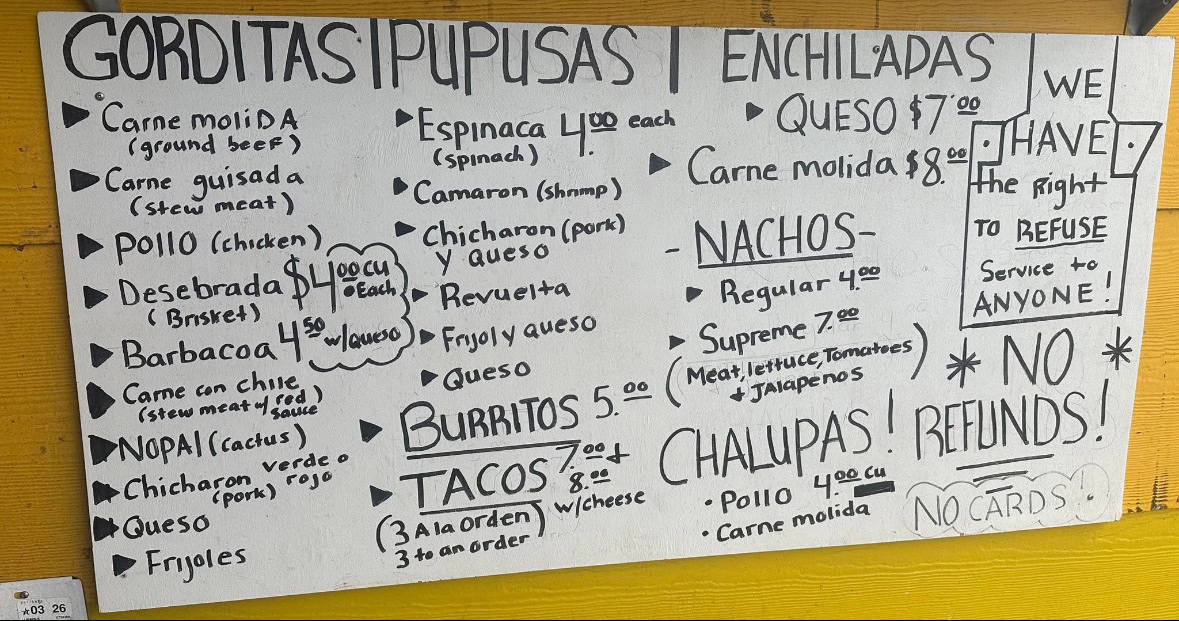 GORDITAS | PUPUSAS | ENCHILADAS
Carne moliDA
(ground beef)
Carne guisada
(stew meat)
Pollo (chicken)
Desebrada $4.00 cu
Each
(Brisket)
4.50 w/queso
Barbacoa
Carne con chile
(stew meat w/ red
sauce)
NOPAl (cactus)
Chicharon verde o
(pork) rojo
Queso
Frijoles
Espinaca 4.00 each
(spinach)
Camaron (shrimp)
Chicharon (pork)
y queso
Revuelta
Frijol y queso
Queso
BURRITOS 5.00
TACOS 7.00 +
8.00
w/cheese
(3 A la orden)
3 to an order
QUESO $7.00
Carne molida $8.00
- NACHOS -
Regular 4.00
Supreme 7.00
(Meat, lettuce, Tomatoes
+ JAlapenos)
CHALUPAS!
• Pollo 4.00 cu
• Carne molida
WE
HAVE
the Right
TO REFUSE
Service to
ANYONE!
* NO *
REFUNDS!
NO CARDS!
★03 26